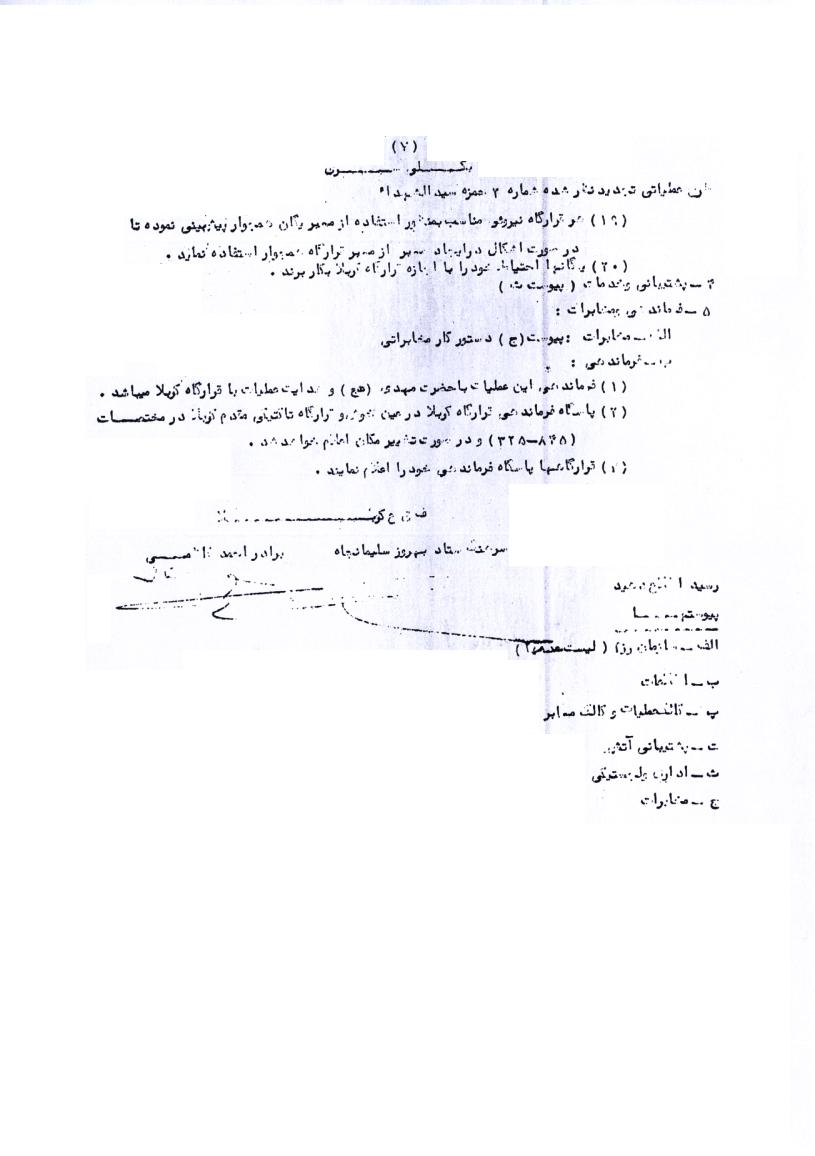 (۷)
بکلو سون
عملیاتی تجدید نظر شده شماره ۲ حمزه سیدالشهداء
(۱۹) هر قرارگاه نیروئی مناسب بمنظور استفاده از معبر یگان همجوار پیش‌بینی نموده تا
در صورت اشکال در ایجاد معبر از معبر قرارگاه همجوار استفاده نماید .
(۲۰) یگانها احتیاط خود را با اجازه قرارگاه کربلا بکار برند .
۴ ــ پشتیبانی و خدمات ( پیوست ث )
۵ ــ فرماندهی و مخابرات :
الف ــ مخابرات : پیوست (ج) دستور کار مخابراتی
ب ــ فرماندهی :
(۱) فرماندهی این عملیات با حضرت مهدی (عج) و هدایت عملیات با قرارگاه کربلا میباشد .
(۲) پاسگاه فرماندهی قرارگاه کربلا در عین خوش و قرارگاه تاکتیکی مقدم کربلا در مختصـــات
(۸۴۵ــ۳۲۵) و در صورت تغییر مکان اعلام خواهد شد .
(۳) قرارگاهها پاسگاه فرماندهی خود را اعلام نمایند .
ف ق ع کربــــــلا
سرهنگ ستاد بهروز سلیمانجاه برادر احمد
رسید اطلاع دهید
پیوستهــا
الف ــ سازمان رزم ( لیست
ب ــ اطلاعات
پ ــ کالک عملیات و کالک معابر
ت ــ پشتیبانی آتش
ث ــ اداری و لجستیکی
ج ــ مخابرات